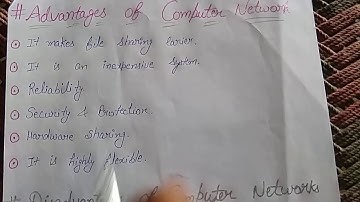 # Advantages of Computer Network
⊙ It makes file sharing easier.
⊙ It is an inexpensive system.
⊙ Reliability.
⊙ Security & Protection.
⊙ Hardware Sharing.
⊙ It is highly flexible.
# Disadvantages of Computer Networks